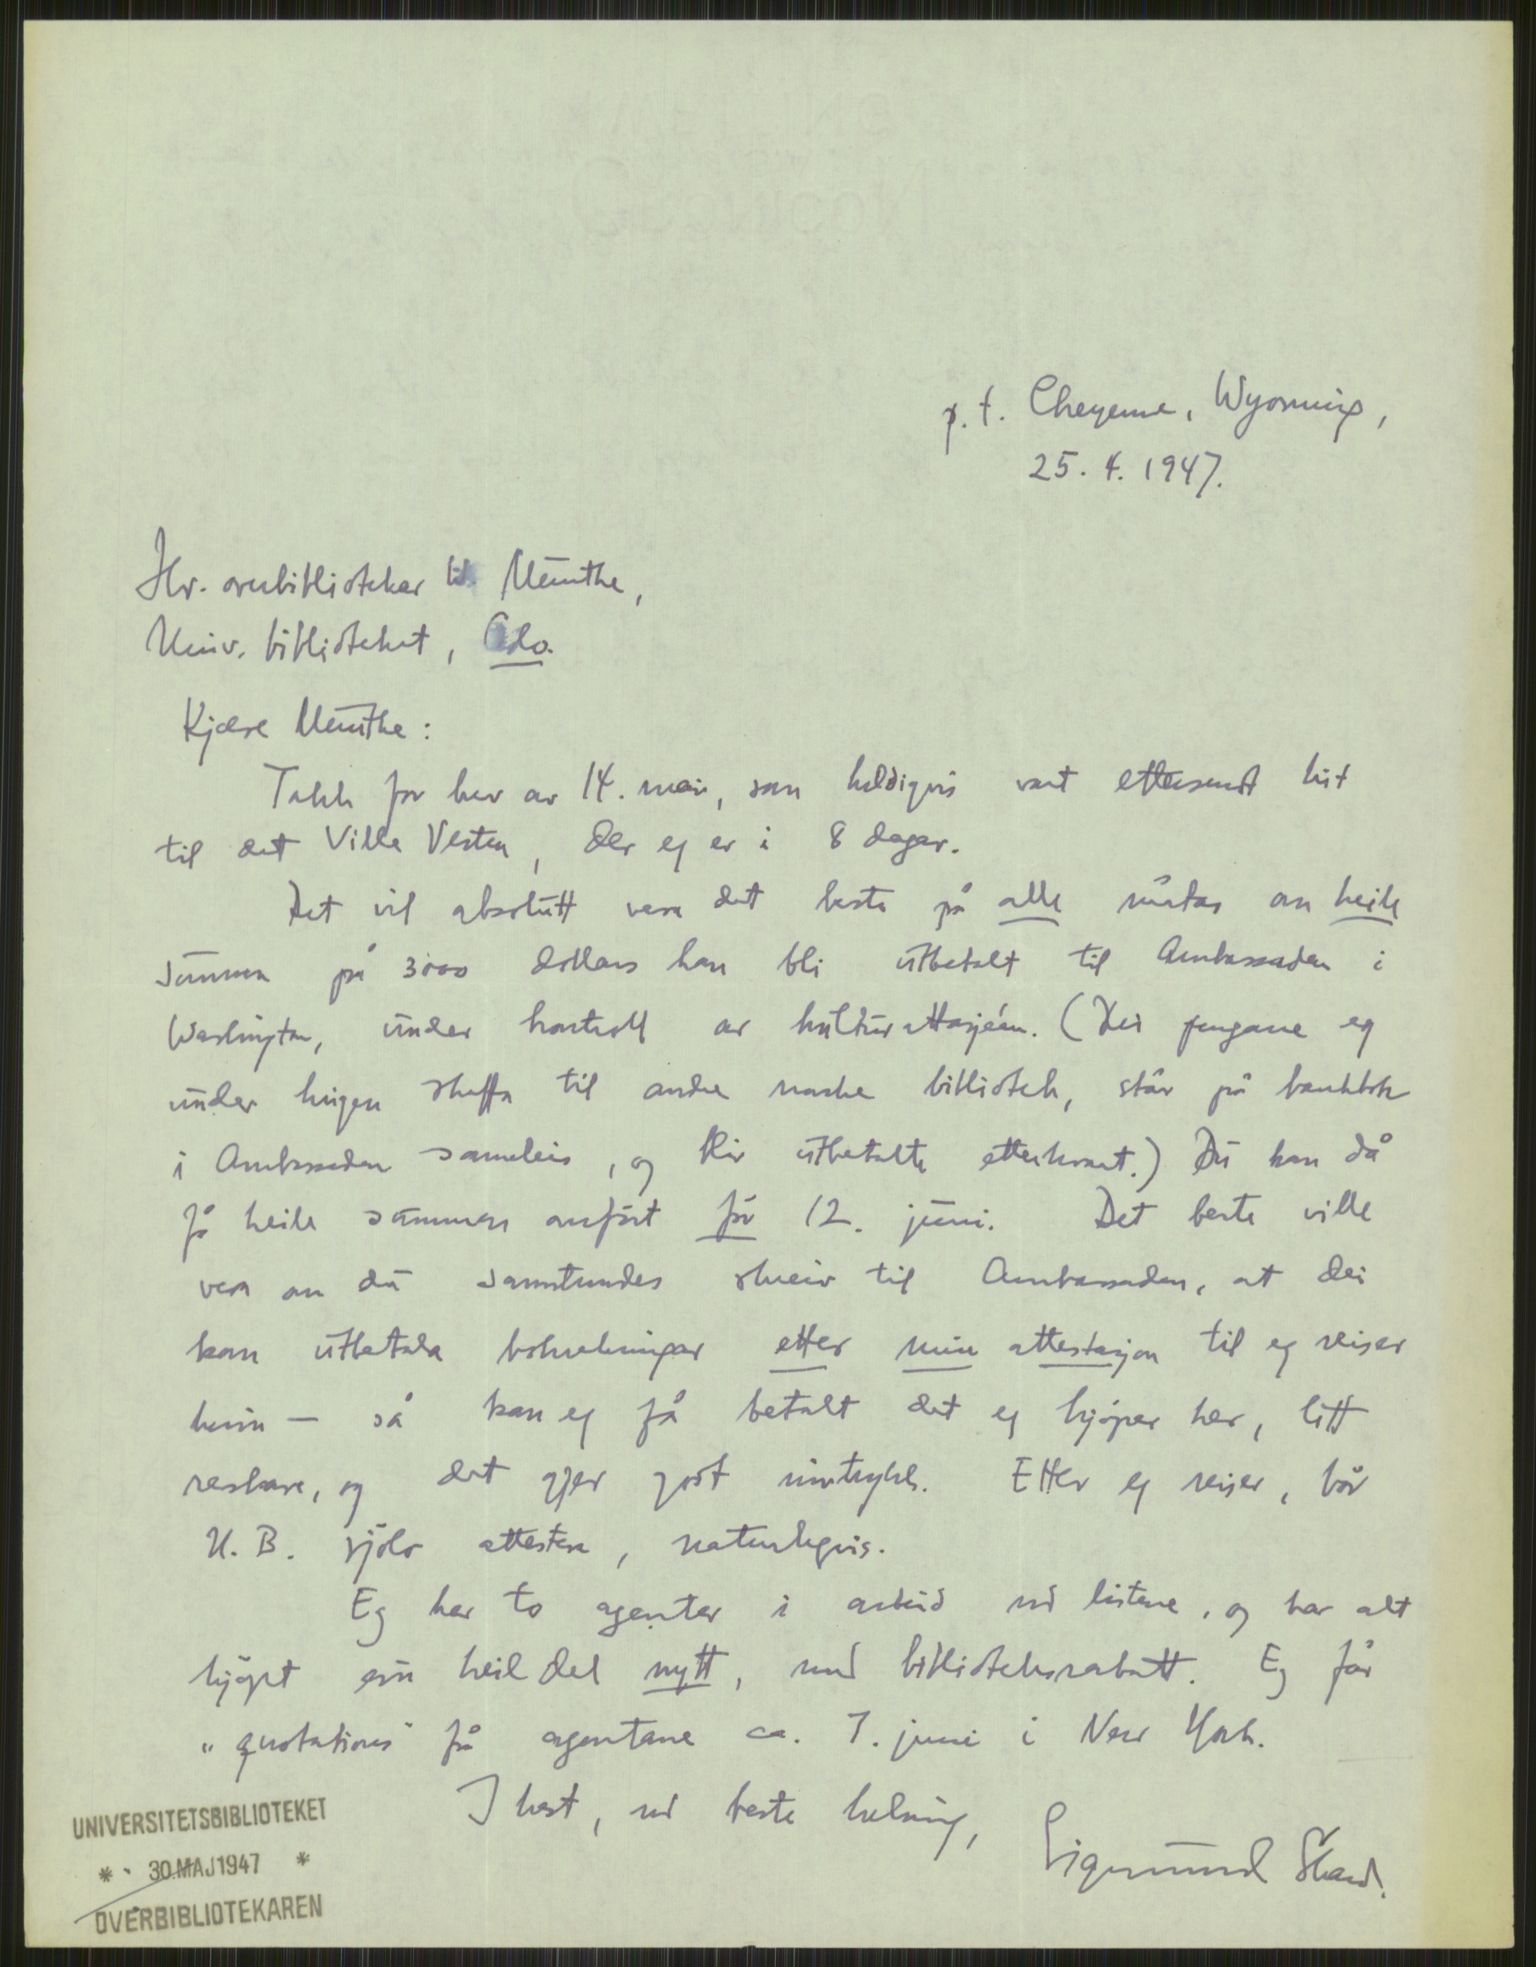 p.t. Cheyenne, Wyoming,
25. 4. 1947.
Hr. overbibliotekar W. Munthe,
Univ. biblioteket, Oslo.
Kjære Munthe:
Takk for brev av 14. mai, som heldigvis vart ettersendt hit
til det Ville Vesten, der eg er i 8 dagar.
Det vil absolutt vera det beste på alle måtar om heile
summen på 3000 dollars kan bli utbetalt til Ambassaden i
Washington, under kontroll av kulturattasjéen. (Dei pengane eg
under krigen skaffa til andre norske bibliotek, står på bankbok
i Ambassaden sameleis, og blir utbetalte etterkvart.) Du kan då
få heile summen anført før 12. juni. Det beste ville
vera om du samstundes skreiv til Ambassaden, at dei
kan utbetala bokrekningar etter min attestasjon til eg reiser
heim – så kan eg få betalt det eg kjøper her, litt
raskare, og det gjer godt inntrykk. Etter eg reiser, bør
U. B. sjølv attestere, naturlegvis.
Eg har to agentar i arbeid med listene, og har alt
kjøpt ein heil del nytt, med biblioteksrabatt. Eg får
„quotations" frå agentane ca. 7. juni i New York.
I hast, med beste helsing,
Sigmund Skard.
UNIVERSITETSBIBLIOTEKET
* 30.MAJ1947 *
OVERBIBLIOTEKAREN